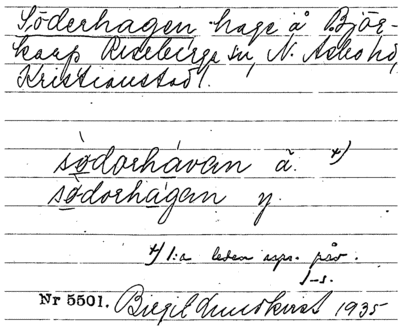 Söderhagen hage å Björ-
karp Riseberga sn, N. Åsbo hd,
Kristianstad l.
sǜdorhávan ä. +)
södorhágan y.
+) 1:a leden asps. påv.
Nr 5501. Birgit Lundkvist 1935